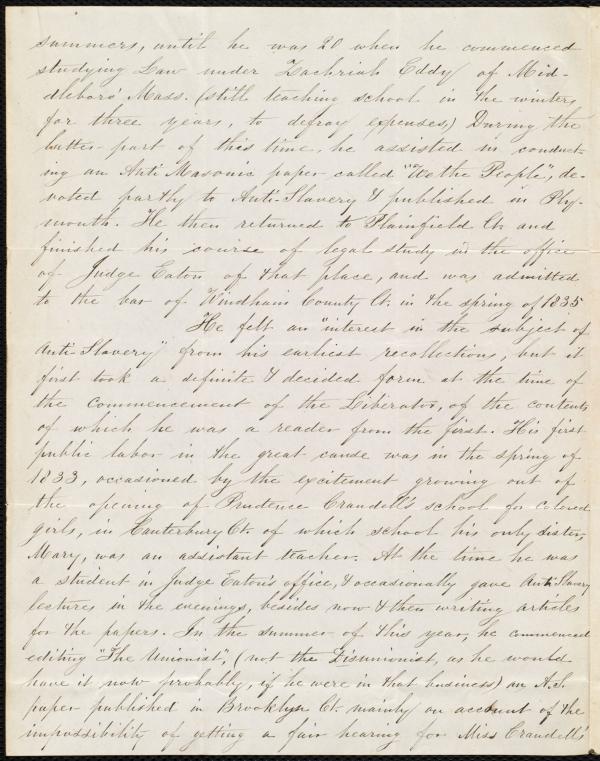 summers, until he was 20 when he commenced
studying Law under Zachriah Eddy of Mid-
dleboro' Mass. (still teaching school in the winters
for three years, to defray expenses.) During the
latter part of this time, he assisted in conduct-
ing an Anti Masonic paper called "We the People", de-
voted partly to Anti-Slavery & published in Ply-
mouth. He then returned to Plainfield Ct. and
finished his course of legal study in the office
of Judge Eaton of that place, and was admitted
to the bar of Windham County Ct. in the spring of 1835
He felt an "interest in the subject of
Anti Slavery" from his earliest recollections, but it
first took a definite & decided form at the time of
the commencement of the Liberator, of the contents
of which he was a reader from the first. His first
public labor in the great cause was in the spring of
1833, occasioned by the excitement growing out of
the opening of Prudence Crandell's school for colored
girls, in Canterbury Ct. of which school his only sister,
Mary, was an assistant teacher. At the time he was
a student in Judge Eaton's office, & occasionally gave Anti Slavery
lectures in the evenings, besides now & then writing articles
for the papers. In the summer of this year, he commenced
editing "The Unionist", (not the Disunionist, as he would
have it now probably, if he were in that business) an A.S.
paper published in Brooklyn Ct. mainly on account of the
impossibility of getting a fair hearing for Miss Crandell's